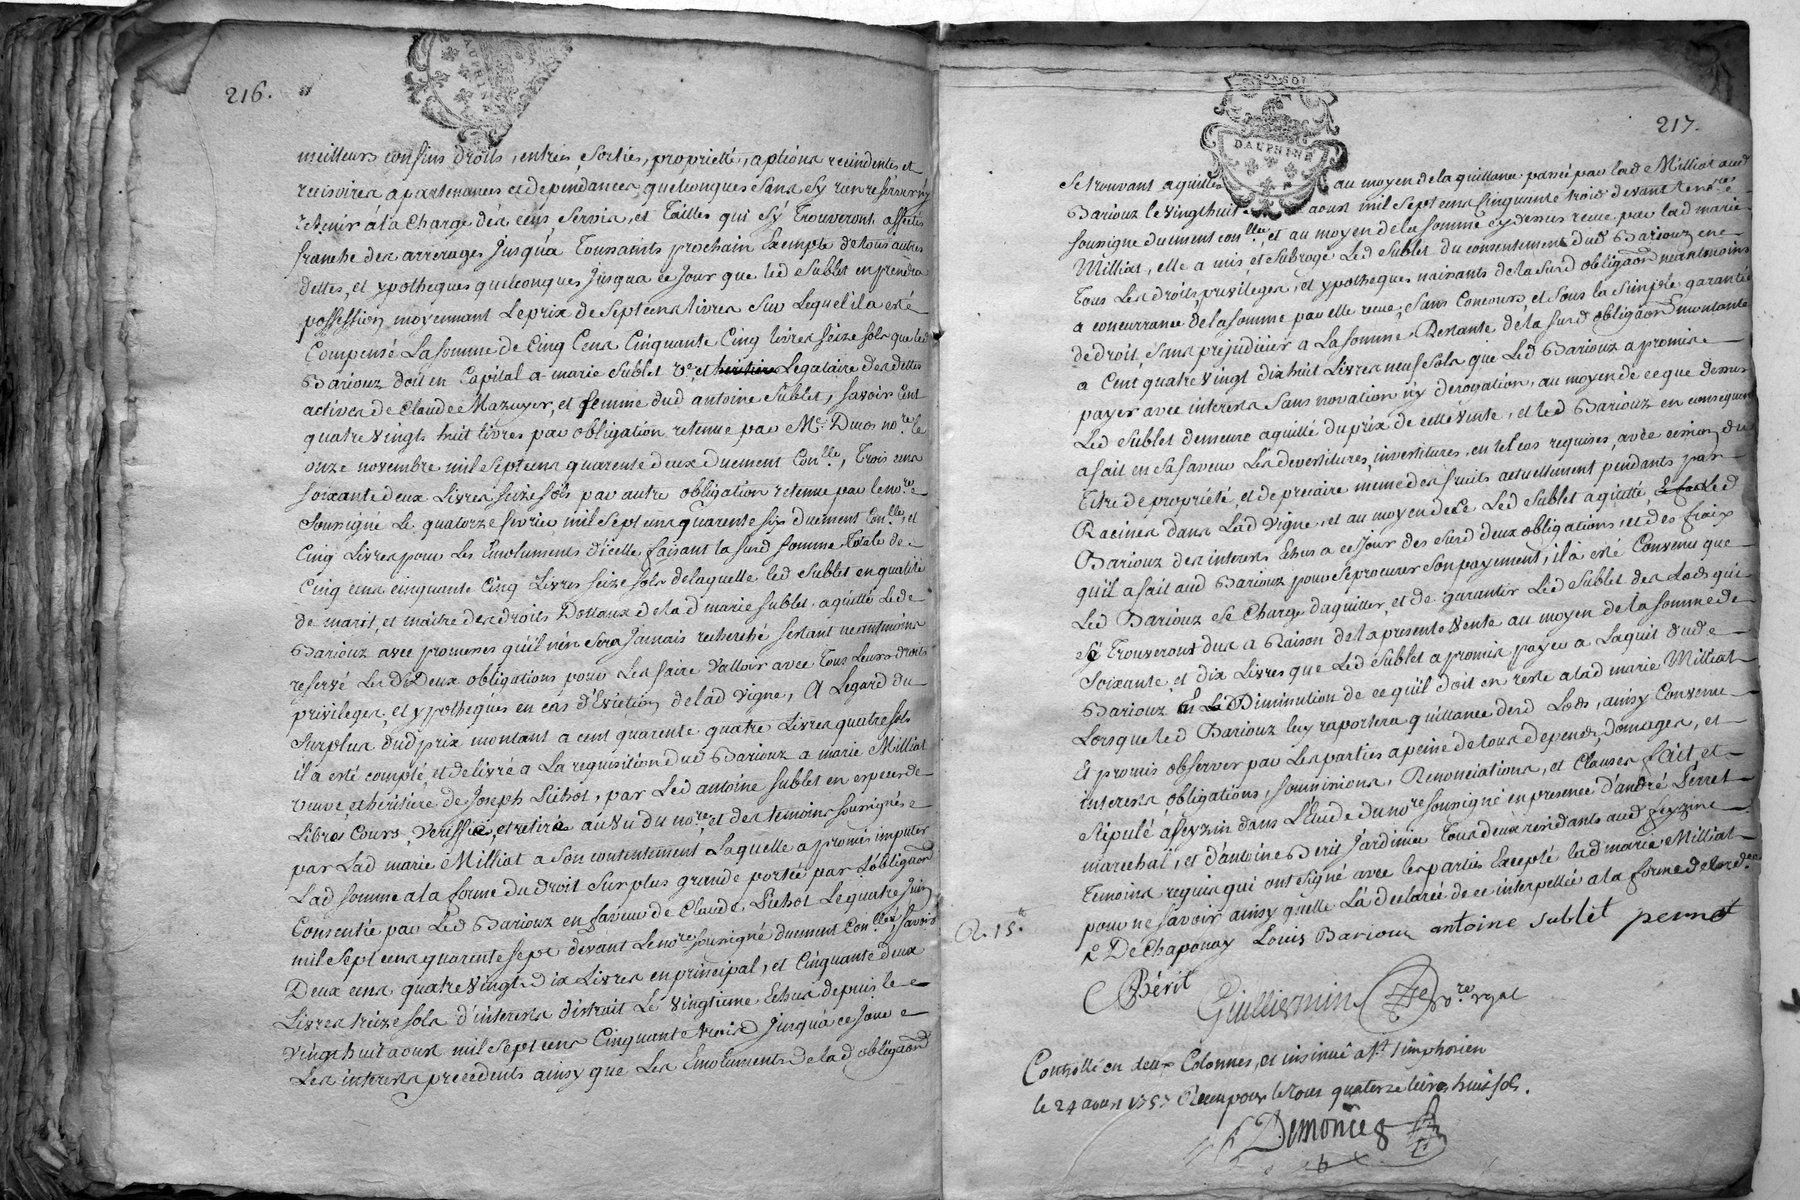 216.
meilleurs confins droits, entrées sorties, proprietté, actions reseindentes et
rescisoires apartenances et dépéndances quelconques sans sy rien reserver ny
retenir a la Charge des cens Servis, et Tailles qui s'y Trouveront affectés
franche des arrerages Jusqu'a Toussaints prochain Exempte de tous autres
dettes, et ypotheques quelconques Jusqua ce Jour que led Sublet en prendra
possession moyennant Le prix de Sept cens livres Sur Lequel il a esté
Compensé La somme de Cinq Cens Cinquante Cinq livres seize sols que led
Bariouz doit en Capital a marie Sublet ve et heritiere Legataire des dettes
actives de Claude Mazuyer, et femme dud antoine Sublet, savoir Cent
quatre vingts huit livres par obligation retenue par Me Ducos nore le
onze novembre mil sept cens quarente deux duement Conlle, Trois cens
soixante deux Livres seize sols par autre obligation retenue par le nore
Soussigné Le quatorze fevrier mil sept cens quarente six duement Conlle, et
Cinq Livres pour Les Emoluments d'icelle faisant la susd somme Totale de
Cinq cens cinquante Cinq Livres seize sols de laquelle led Sublet en qualité
de marit, et maitre des droits Dottaux de lad marie Sublet a quitté Led
Bariouz avec promesses qu'il n'en sera Jamais recherché s'estant neantmoins
reservé Les Deux obligations pour Les faire Valloir avec Tous Leurs droits
privileges, et ypotheques en cas d'Eviction de lad Vigne, A Legard du
surplus dud prix montant a cent quarente quatre Livres quatre sols
il a esté compté, et delivré a La requisition dud Bariouz a marie Milliat
veuve et héritière de Joseph Pichot, par Led antoine Sublet en especes de
Libre Cours Veriffié et retiré au vu du nore et des temoins soussignés
par Lad marie Milliat a Son contentement Laquelle a promis imputer
Lad somme a la forme du droit sur plus grande portée par L'obligaon
Consentie par Led Bariouz en faveur de Claude Pichot Le quatre Juin
mil sept cens quarente sept devant Le nore soussigné duement Conlle, savoir
Deux cens quatre vingt dix Livres en principal, et Cinquante deux
Livres treize sols d'interests distrait Le Vingtieme Echus depuis le
vingt huit aoust mil sept cens Cinquante trois Jusqu'a ce Jour
Les interests precedents ainsy que Les Emoluments de lad obligaon
217.
DAUPHINÉ
Se trouvant aquittés au moyen de la quittance passée par lad Milliat aud
Bariouz le vingt huit aoust mil sept cens Cinquante trois devant le nore
soussigné duement conlle, et au moyen de la somme cy dessus reçue par lad marie
Milliat, elle a mis, et subrogé Led Sublet du consentement dud Bariouz en
Tous Les droits, privileges, et ypotheques naissants de la susd obligaon neantmoins
a concurrance de la somme par elle reçue, sans Concours, et sous la simple garantie
de droit, sans prejudicier a La somme Restante de la susd obligaon montante
a Cent quatre vingt dix huit Livres neuf sols que Led Bariouz a promis
payer avec interests sans novation n'y derogation, au moyen de ce que dessus
Led Sublet demeure aquitté du prix de cette Vente, et led Bariouz en consequence
a fait en sa faveur Les devestitures, investitures, en tel cas requises, avec cession du
Titre de propriété, et de precaire meme des fruits actuellement pendants par
Racines dans Lad Vigne, et au moyen de ce Led Sublet a quitté Led
Bariouz des interests Echus a ce Jour des susd deux obligations, et des fraix
qu'il a fait aud Bariouz pour se procurer son payement, il a esté Convenu que
Led Bariouz se Charge d'aquitter, et de garantir Led Sublet des Lods qui
se Trouveront dus a Raison de la presente Vente au moyen de la somme de
Soixante et dix Livres que Led Sublet a promis payer a Laquit dud
Bariouz en Diminution de ce qu'il doit en reste a lad marie Milliat
Lorsque led Bariouz luy raportera quittance desd Lods, ainsy Convenu
Et promis observer par Les parties a peine de tous depends, domages, et
interests, obligations, soumissions, Renonciations, et Clauses fait, et
stipulé a feyzin dans L'étude du nore soussigné en presence d'andré Perret
marechal, et d'antoine Berit Jardinier Tous deux residants aud feyzin
Temoins requis qui ont signé avec les parties Excepté lad marie Milliat
pour ne savoir ainsy qu'elle L'a declarée de ce interpellée a la forme de lordce
R. 15s.
De Chaponay Louis Bariouz antoine sublet perret
Bérit
Guilliermin nore royal
Controllé en deux Colonnes, et insinué a St Simphorien
le 24 aoust 1757 Reçu pour le tous quatorze livres huit sols.
Demonies